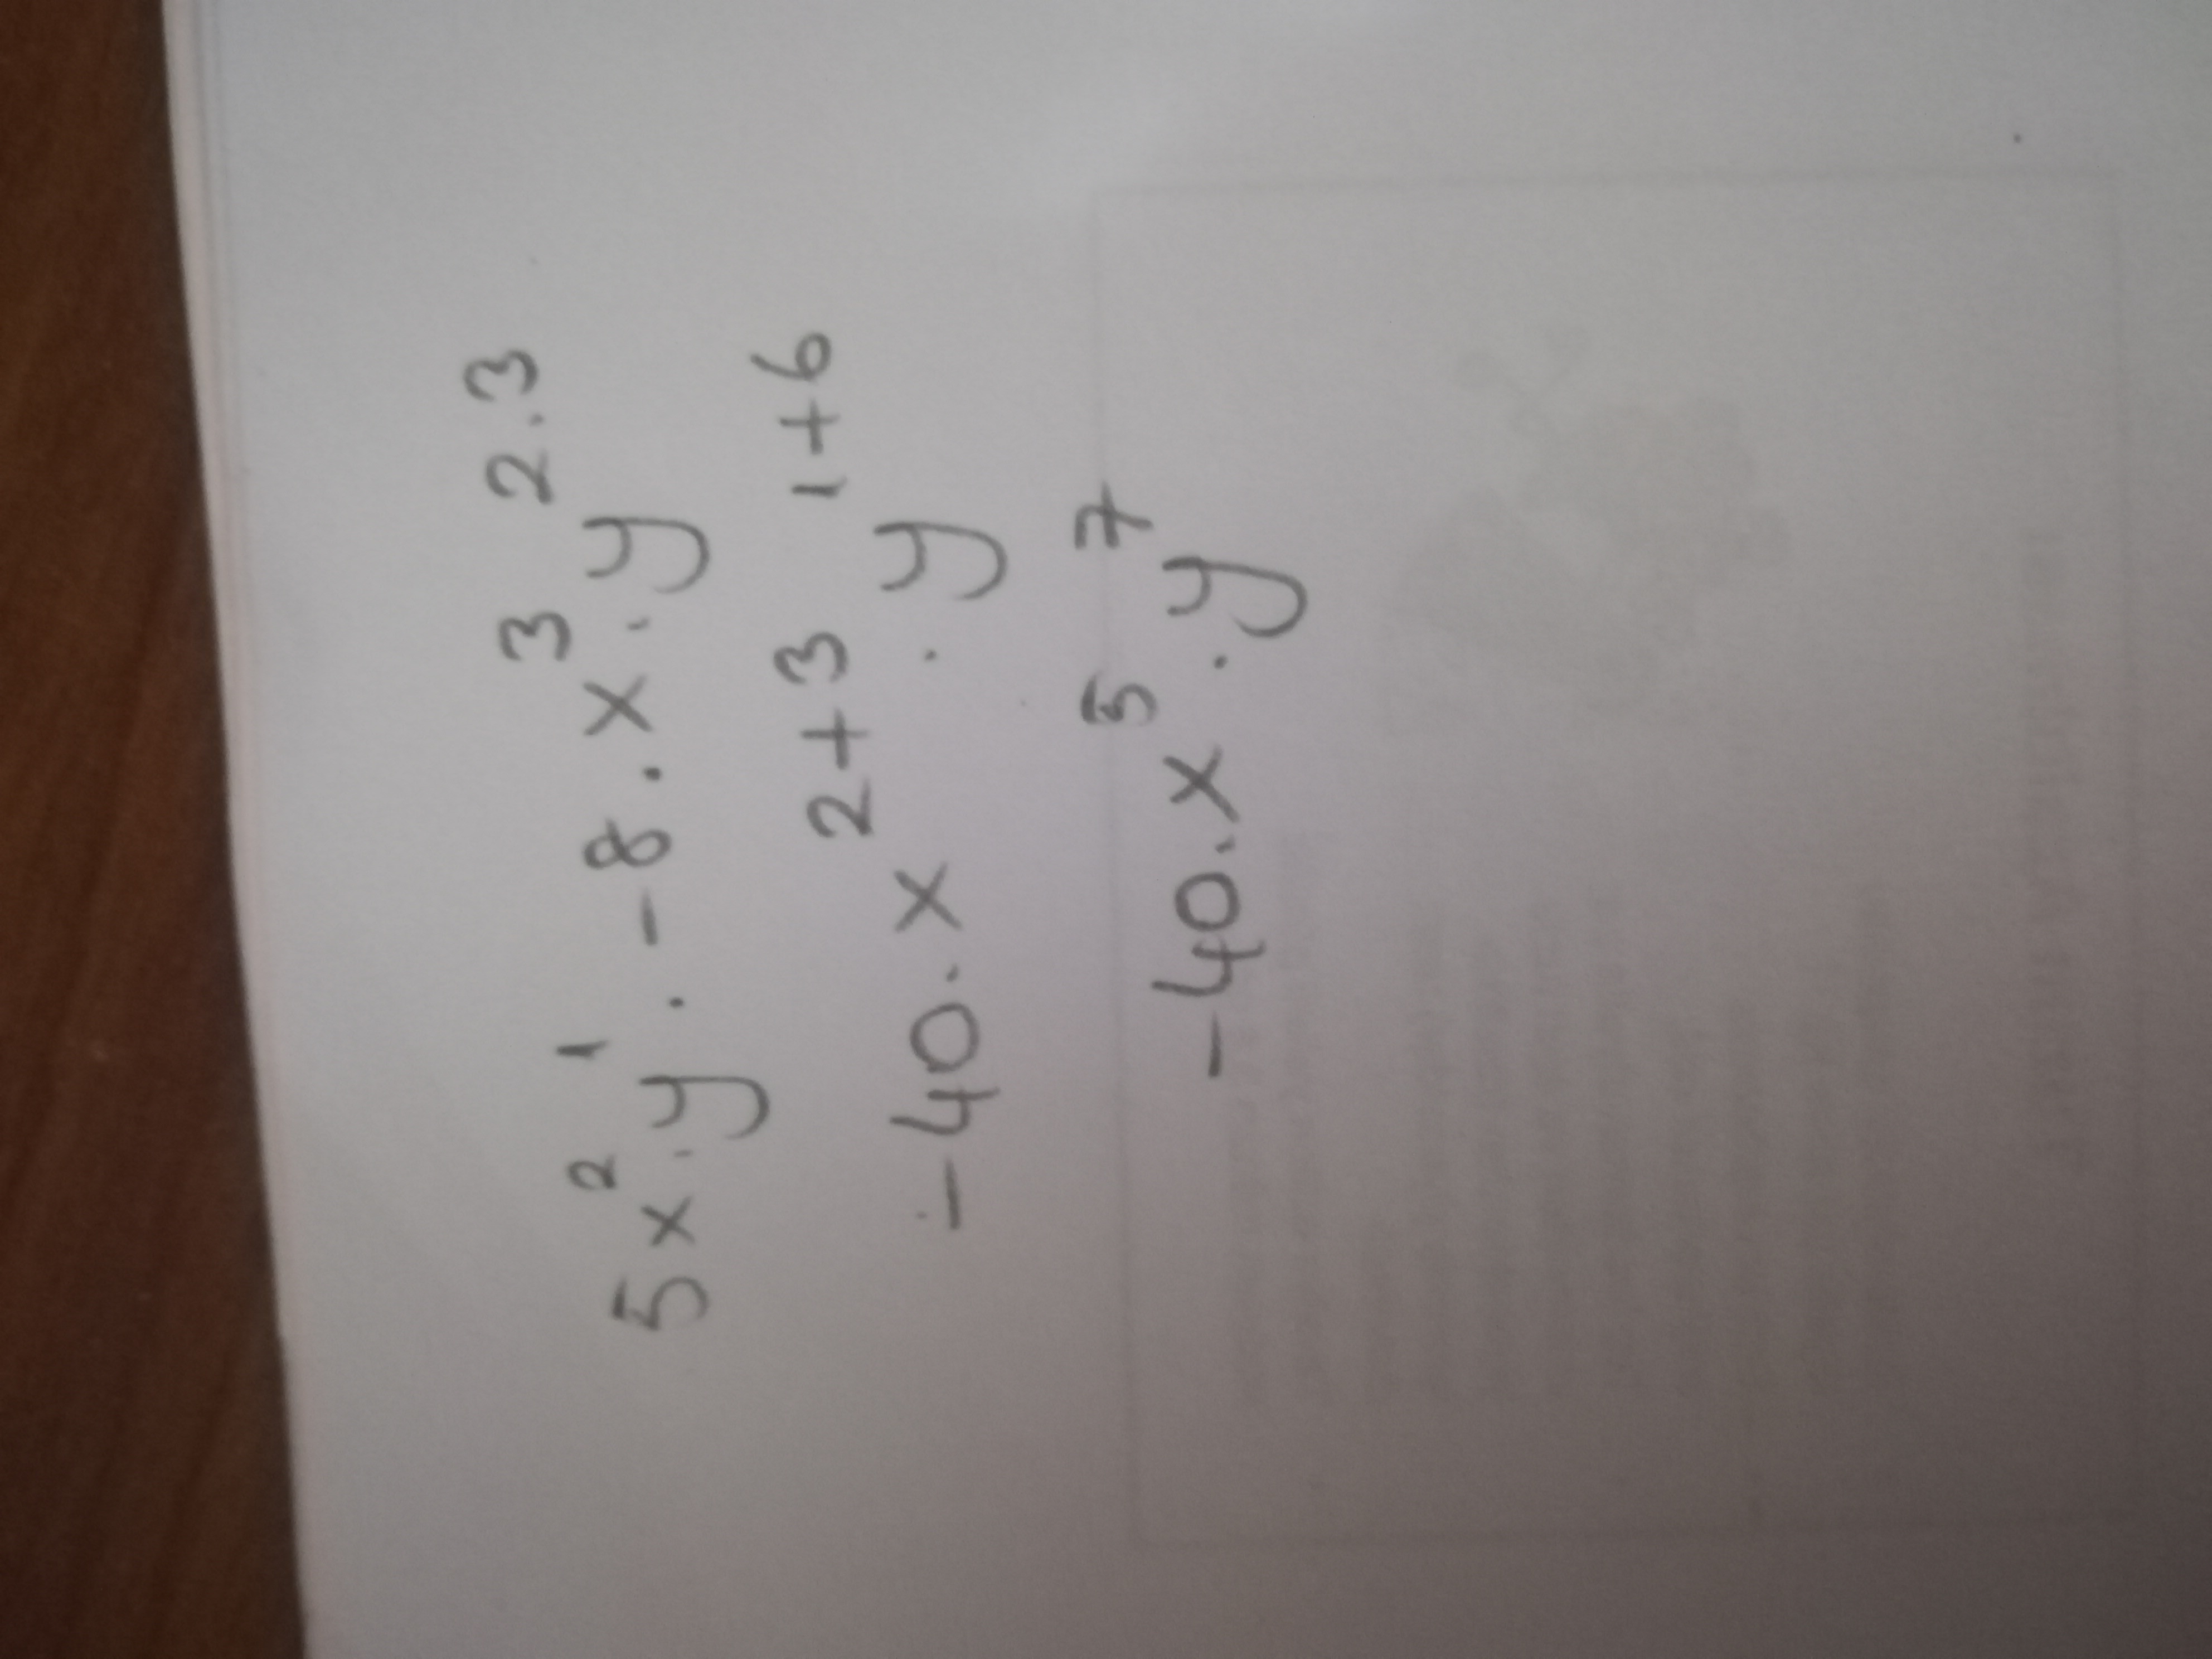 5x².y¹ . -8 . x³ . y²·³
-40 . x²⁺³ . y¹⁺⁶
-40 . x⁵ . y⁷